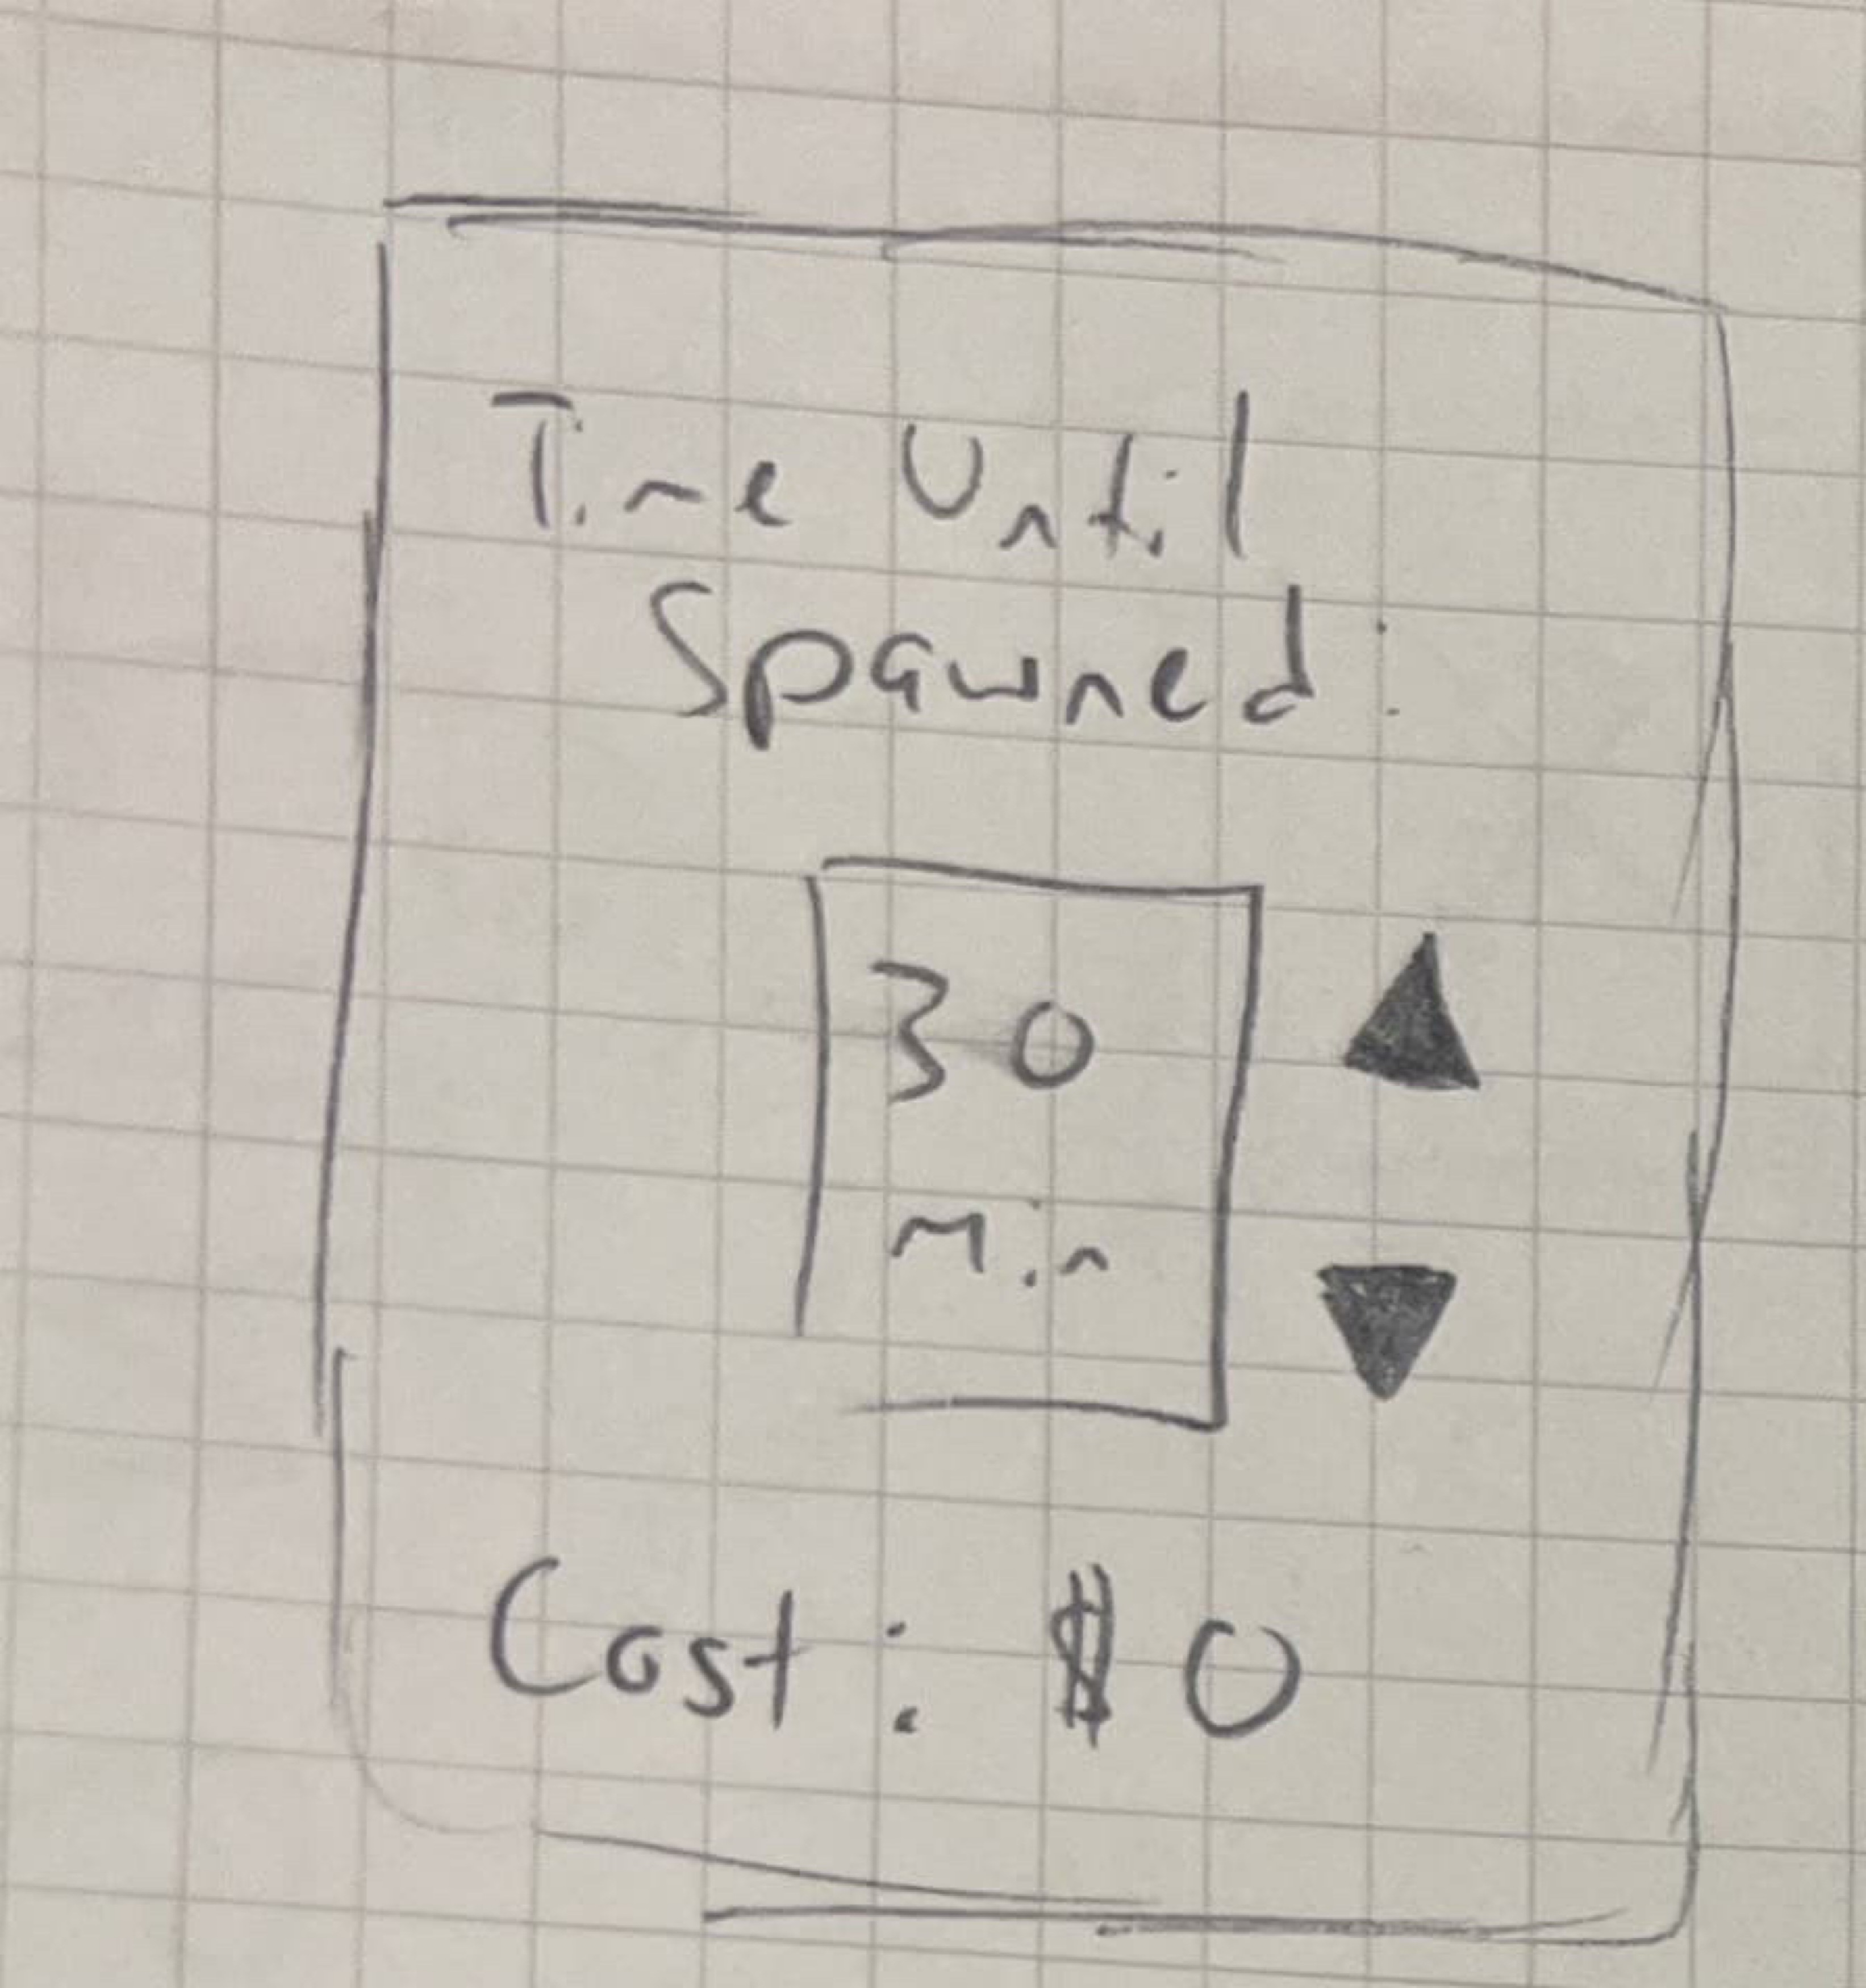 Time Until
Spawned:
30
Min
Cost: $0